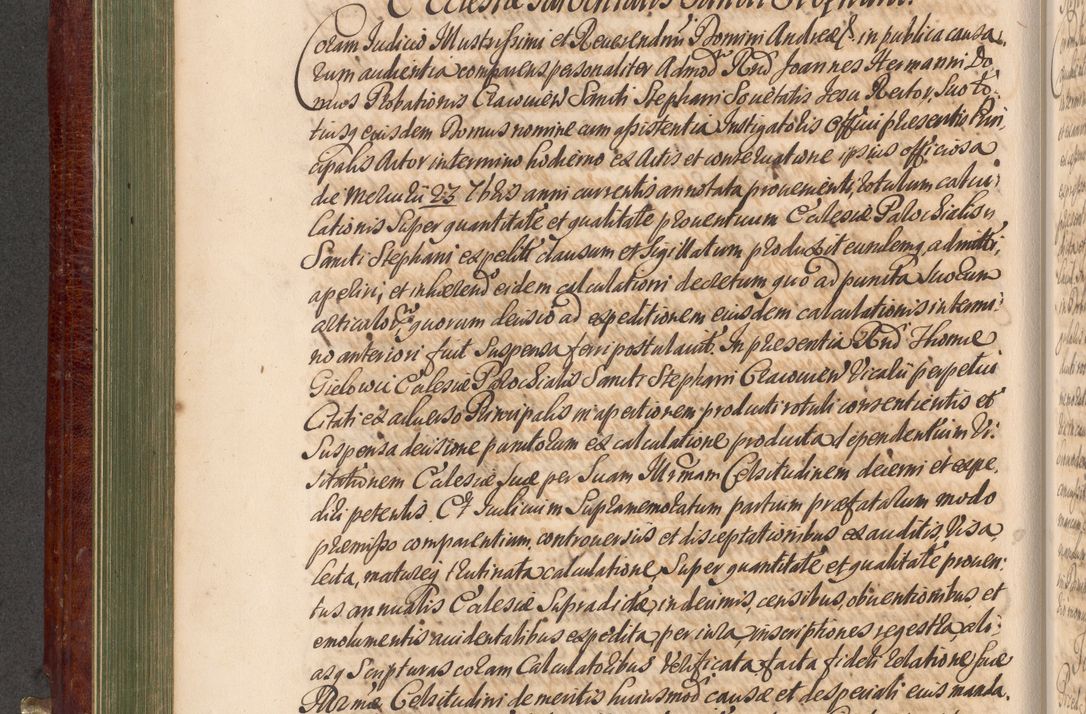 Ecclesiæ Parochialis Sancti Stephani.
Coram Judicio Illustrissimi et Reverendmi Domini Andreæ &c in publica causa,
rum audientia comparens personaliter Admod Rnd Joannes Hermanni Do,
mus Probationis Cracovien Sancti Stephani Societatis Jesu Rector, Suo to,
tiusq ejusdem Domus nomine cum assistentia Instigatoris Officii præsentis Prin,
cipalis Actor in termino hodierno ex Actis et conservatione ipsius officiosa
die Mercurii 23 7bris anni currentis annotata provenienti, rotulum calcu,
lationis Super quantitate et qualitate proventuum Ecclesiæ Parochialis
Sancti Stephani expediti clausum et Sigillatum produxit eundemq admitti,
aperiri, et inhærend eidem calculationi decretum quo ad puncta Suorum
articulorum quorum decisio ad expeditionem ejusdem calculationis in termi,
no anteriori fuit Suspensa ferri postulavit. In præsentia Rnd Thomæ
Gielowicz Ecclesiæ Parochialis Sancti Stephani Cracovien Vicarii perpetui
Citati ex adverso Principalis in apertionem producti rotuli consentientis et
Suspensa decisione punctorum ex calculatione producta dependentium Vi,
sitationem Ecclesiæ Suæ per Suam Illrmam Celsitudinem decerni et expe,
diri petentis. Et Judicium Supramemoratum partium præfatarum modo
præmisso comparentium, controversiis et disceptationibus exauditis, Visa
lecta, matureq trutinata calculatione, Super quantitate et qualitate proven,
tus annualis Ecclesiæ Supradictæ, in decimis, censibus, obventionibus, et
emolumentis accidentalibus expedita, per jura, inscriptiones regestra ali,
asq Scripturas coram Calculatoribus Verificata, facta fideli relatione Suæ
Illrmæ Celsitudini de meritis hujusmod causæ et de speciali ejus manda,